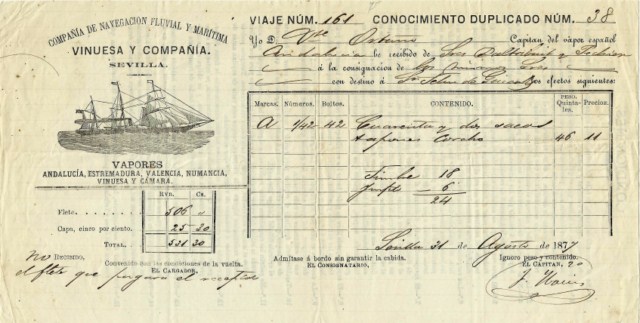 COMPAÑÍA DE NAVEGACION FLUVIAL Y MARÍTIMA
VINUESA Y COMPAÑÍA.
SEVILLA.
VAPORES
ANDALUCÍA, ESTREMADURA, VALENCIA, NUMANCIA,
VINUESA Y CÁMARA.
RVN. CS.
Flete. 506 "
Capa, cinco por ciento. 25 30
TOTAL. 531 30
VIAJE NÚM. 161 CONOCIMIENTO DUPLICADO NÚM. 38
Yo D. Capitan del vapor español
Andalucia he recibido de
á la consignacion de
con destino á Sn Feliu de los efectos siguientes:
Marcas. Números. Bultos. CONTENIDO. PESO. Quintales. Precios.
A 1/42 42 Cuarenta y dos sacos
tapones corcho 46 11
Timbe 18
6
24
Sevilla 31 de Agosto de 1877
No RECIBIDO,
el flete que pagara el
Conforme con las condiciones de la vuelta.
EL CARGADOR,
Admítase á bordo sin garantir la cabida.
EL CONSIGNATARIO,
Ignoro peso y contenido.
EL CAPITAN,